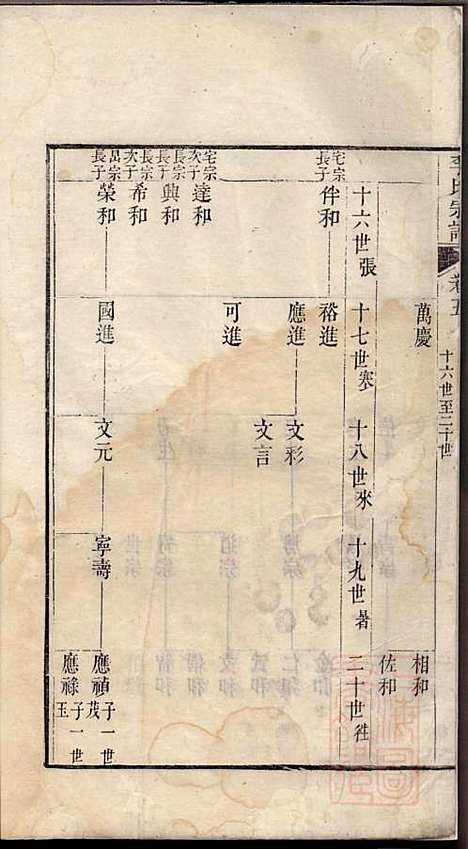 李氏宗譜 卷五 十六世至二十世
萬慶 相和
佐和
十六世張 十七世寒 十八世來 十九世暑 二十世往
宅宗長子 伴和 裕進
應進 文彩
文言
可進
宅宗次子 達和
長宗長子 興和
長宗次子 希和
岊宗長子 榮和 國進 文元 寧壽 應禎 子一世茂
應祿 子一世玉